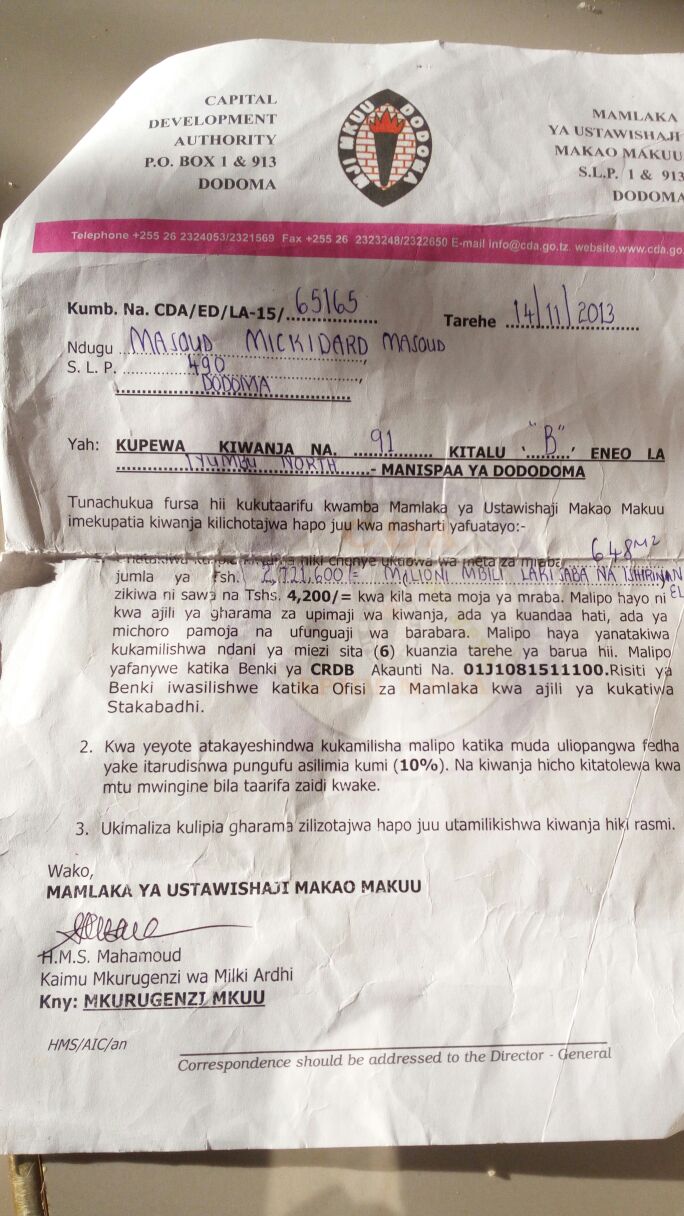 CAPITAL
DEVELOPMENT
AUTHORITY
P.O. BOX 1 & 913
DODOMA
MJI MKUU DODOMA
MAMLAKA
YA USTAWISHAJI
MAKAO MAKUU
S.L.P. 1 & 913
DODOMA
Telephone +255 26 2324053/2321569 Fax +255 26 2323248/2322650 E-mail info@cda.go.tz. website.www.cda.go.
Kumb. Na. CDA/ED/LA-15/ 65165 Tarehe 14/11/2013
Ndugu MASOUD MICKIDARD MASOUD
S. L. P. 490
DODOMA
Yah: KUPEWA KIWANJA NA. 91 KITALU '"B"' ENEO LA
IYUMBU NORTH - MANISPAA YA DODODOMA
Tunachukua fursa hii kukutaarifu kwamba Mamlaka ya Ustawishaji Makao Makuu
imekupatia kiwanja kilichotajwa hapo juu kwa masharti yafuatayo:-
hiki chenye ukubwa wa meta za mraba 648M2
jumla ya Tsh. 2,721,600/= MILIONI MBILI LAKI SABA NA ISHIRINI NA
zikiwa ni sawa na Tshs. 4,200/= kwa kila meta moja ya mraba. Malipo hayo ni EL
kwa ajili ya gharama za upimaji wa kiwanja, ada ya kuandaa hati, ada ya
michoro pamoja na ufunguaji wa barabara. Malipo haya yanatakiwa
kukamilishwa ndani ya miezi sita (6) kuanzia tarehe ya barua hii. Malipo
yafanywe katika Benki ya CRDB Akaunti Na. 01J1081511100.Risiti ya
Benki iwasilishwe katika Ofisi za Mamlaka kwa ajili ya kukatiwa
Stakabadhi.
2. Kwa yeyote atakayeshindwa kukamilisha malipo katika muda uliopangwa fedha
yake itarudishwa pungufu asilimia kumi (10%). Na kiwanja hicho kitatolewa kwa
mtu mwingine bila taarifa zaidi kwake.
3. Ukimaliza kulipia gharama zilizotajwa hapo juu utamilikishwa kiwanja hiki rasmi.
Wako,
MAMLAKA YA USTAWISHAJI MAKAO MAKUU
H.M.S. Mahamoud
Kaimu Mkurugenzi wa Milki Ardhi
Kny: MKURUGENZI MKUU
HMS/AIC/an
Correspondence should be addressed to the Director - General